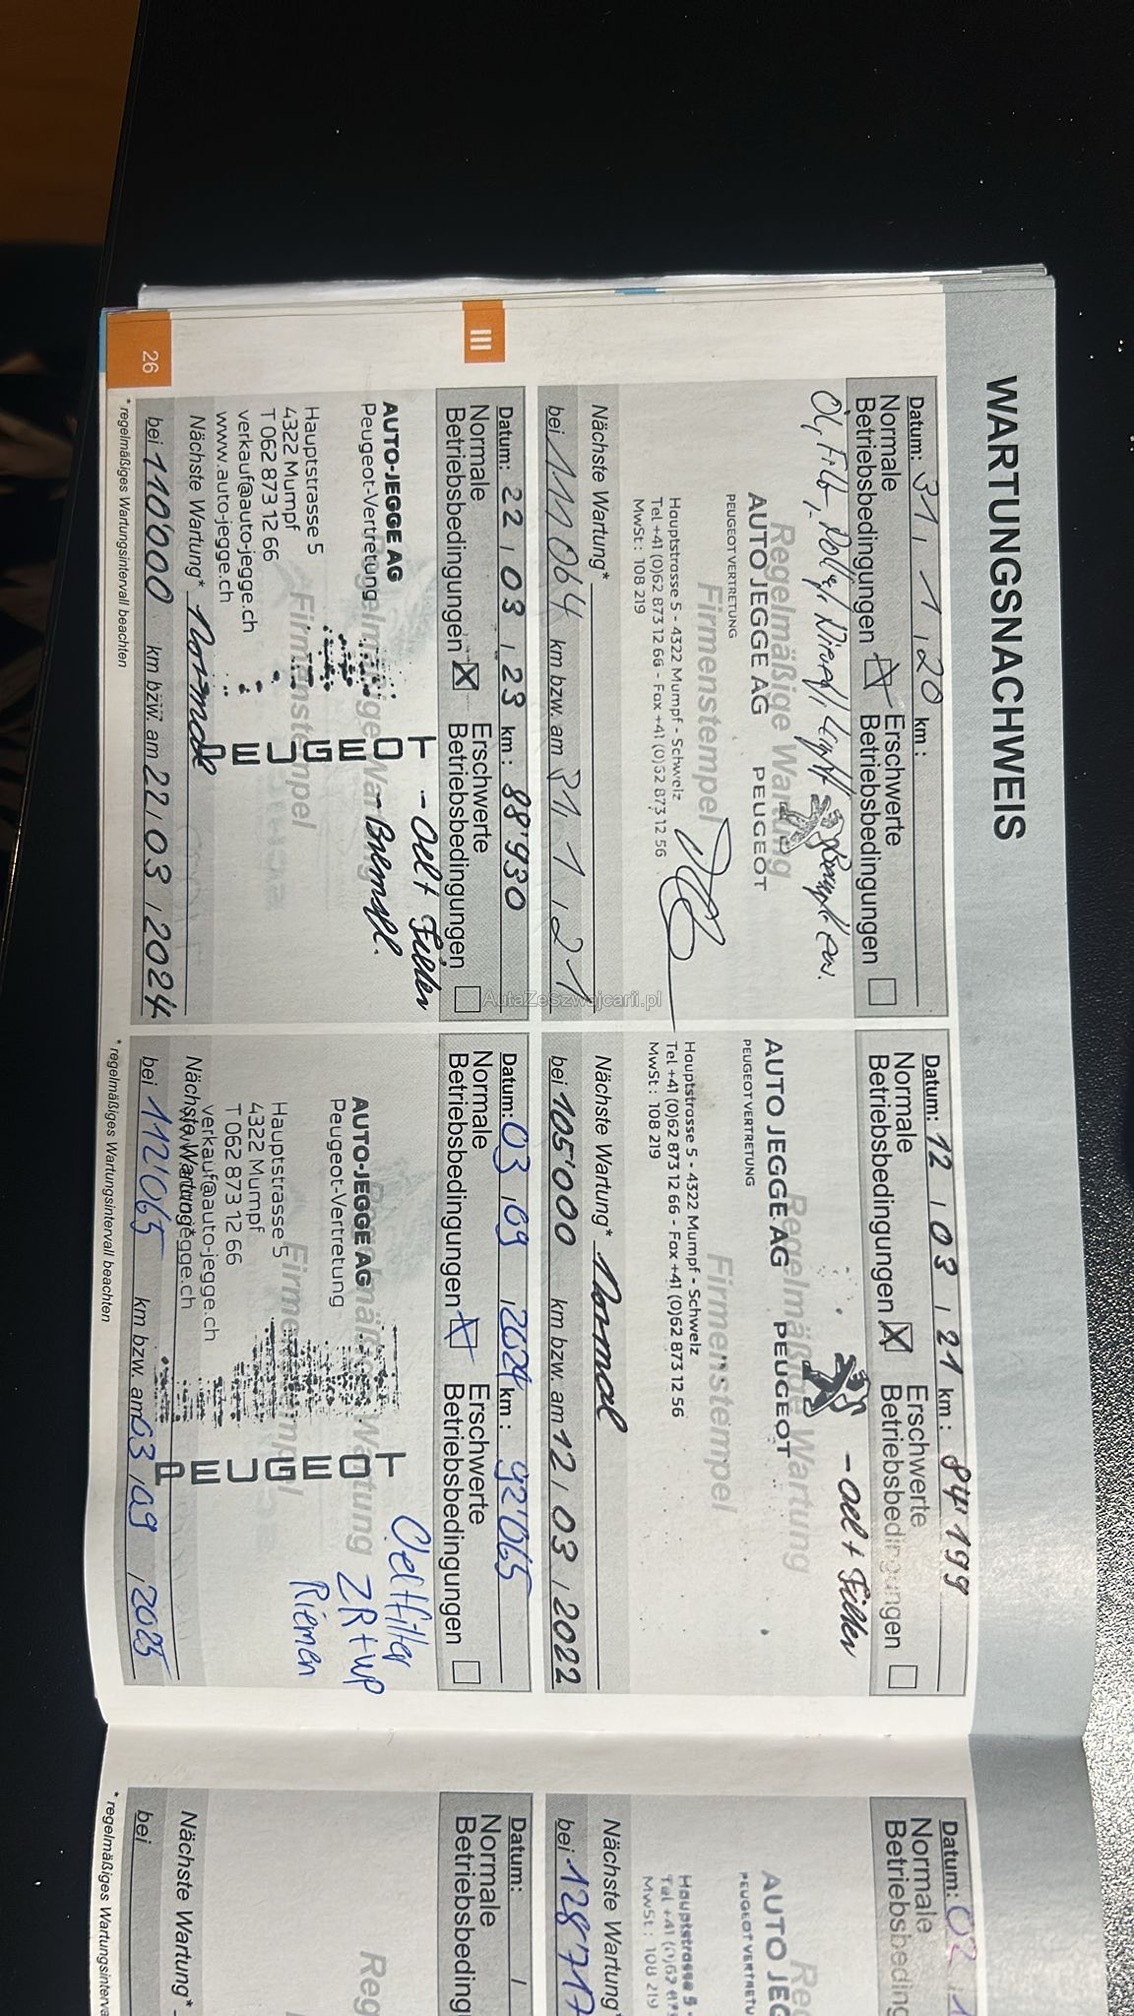 WARTUNGSNACHWEIS
Datum: 31 , 1 , 20 km :
Normale Betriebsbedingungen
Erschwerte Betriebsbedingungen
Öl,
Regelmäßige Wartung
AUTO JEGGE AG PEUGEOT
PEUGEOT VERTRETUNG
Firmenstempel
Hauptstrasse 5 - 4322 Mumpf - Schweiz
Tel +41 (0)62 873 12 66 - Fax +41 (0)62 873 12 56
MwSt : 108 219
Nächste Wartung*
bei 111 064 km bzw. am 31 , 1 , 21
Datum: 12 , 03 , 21 km : 84'199
Normale Betriebsbedingungen X
Erschwerte Betriebsbedingungen
- Oel + Filter
Regelmäßige Wartung
AUTO JEGGE AG PEUGEOT
PEUGEOT VERTRETUNG
Firmenstempel
Hauptstrasse 5 - 4322 Mumpf - Schweiz
Tel +41 (0)62 873 12 66 - Fax +41 (0)62 873 12 56
MwSt : 108 219
Nächste Wartung* Normal
bei 105'000 km bzw. am 12 , 03 , 2022
III
Datum: 22 , 03 , 23 km : 88'930
Normale Betriebsbedingungen X
Erschwerte Betriebsbedingungen
- Oel + Filter
- Bremsfl.
Regelmäßige Wartung
AUTO-JEGGE AG
Peugeot-Vertretung
PEUGEOT
Firmenstempel
Hauptstrasse 5
4322 Mumpf
T 062 873 12 66
verkauf@auto-jegge.ch
www.auto-jegge.ch
Nächste Wartung* Normal
bei 110'000 km bzw. am 22 , 03 , 2024
* regelmäßiges Wartungsintervall beachten
26
Datum: 03 , 09 , 2024 km : 92'065
Normale Betriebsbedingungen
Erschwerte Betriebsbedingungen
Oelfilter
ZR + WP
Riemen
Regelmäßige Wartung
AUTO-JEGGE AG
Peugeot-Vertretung
PEUGEOT
Firmenstempel
Hauptstrasse 5
4322 Mumpf
T 062 873 12 66
verkauf@auto-jegge.ch
www.auto-jegge.ch
Nächste Wartung*
bei 112'065 km bzw. am 03 , 09 , 2025
* regelmäßiges Wartungsintervall beachten
Datum: 02
Normale
Betriebsbeding
AUTO JEG
PEUGEOT VERTRETU
Hauptstrasse 5 -
Tel +41 (0)62 873
MwSt : 108 219
Nächste Wartung*
bei 128'717
Datum:
Normale
Betriebsbeding
Reg
Nächste Wartung*
bei
* regelmäßiges Wartungsinterva
AutaZeSzwajcarii.pl